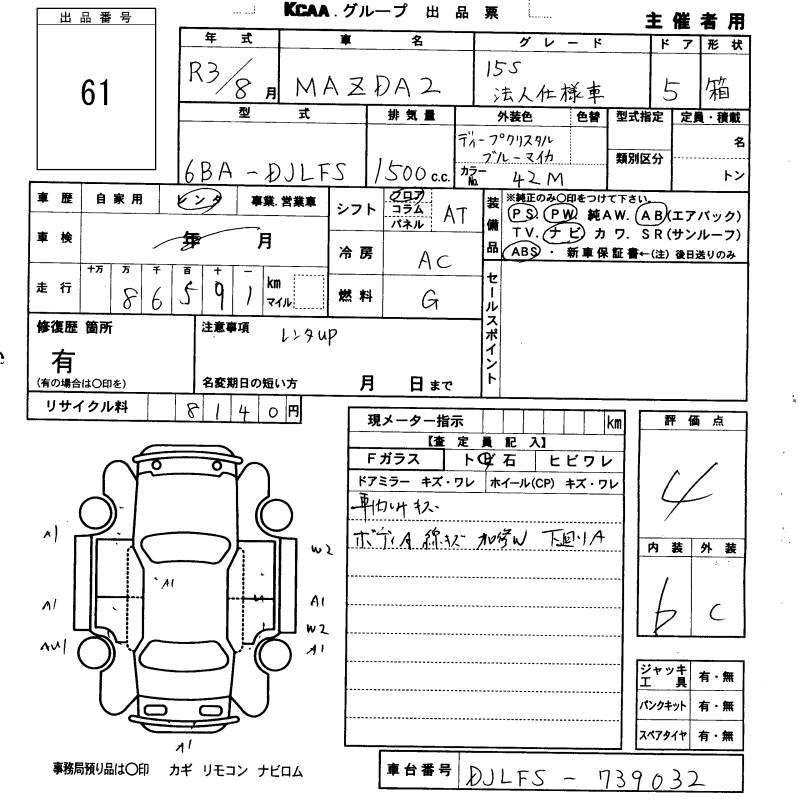 KCAA.グループ 出品票
主催者用
出品番号
61
年式 車名 グレード ドア 形状
R3/8月 MAZDA2 15S 法人仕様車 5 箱
型式 排気量 外装色 色替 型式指定 定員・積載
6BA-DJLFS 1500c.c. ディープクリスタル ブルーマイカ
カラーNo. 42M 類別区分 名 トン
車歴 自家用 レンタ 事業.営業車
車検 年 月
走行 十万 万 千 百 十 一
86591 km マイル
シフト フロア コラム パネル AT
冷房 AC
燃料 G
装備品 ※純正のみ○印をつけて下さい。
PS. PW. 純AW. AB(エアバック)
TV. ナビ カワ. SR(サンルーフ)
ABS・新車保証書←(注)後日送りのみ
セールスポイント
修復歴 箇所
有
(有の場合は○印を)
注意事項 レンタup
名変期日の短い方 月 日まで
リサイクル料 8140円
現メーター指示 km
【査定員記入】
Fガラス ト 石 ヒビワレ
ドアミラー キズ・ワレ ホイール(CP) キズ・ワレ
キズ
ボディA 線キズ 下廻りA
評価点
4
内装 外装
b C
ジャッキ 工具 有・無
パンクキット 有・無
スペアタイヤ 有・無
A1
W2
A1
A1
A1
W2
AU1
A1
A1
事務局預り品は○印 カギ リモコン ナビロム
車台番号 DJLFS-739032